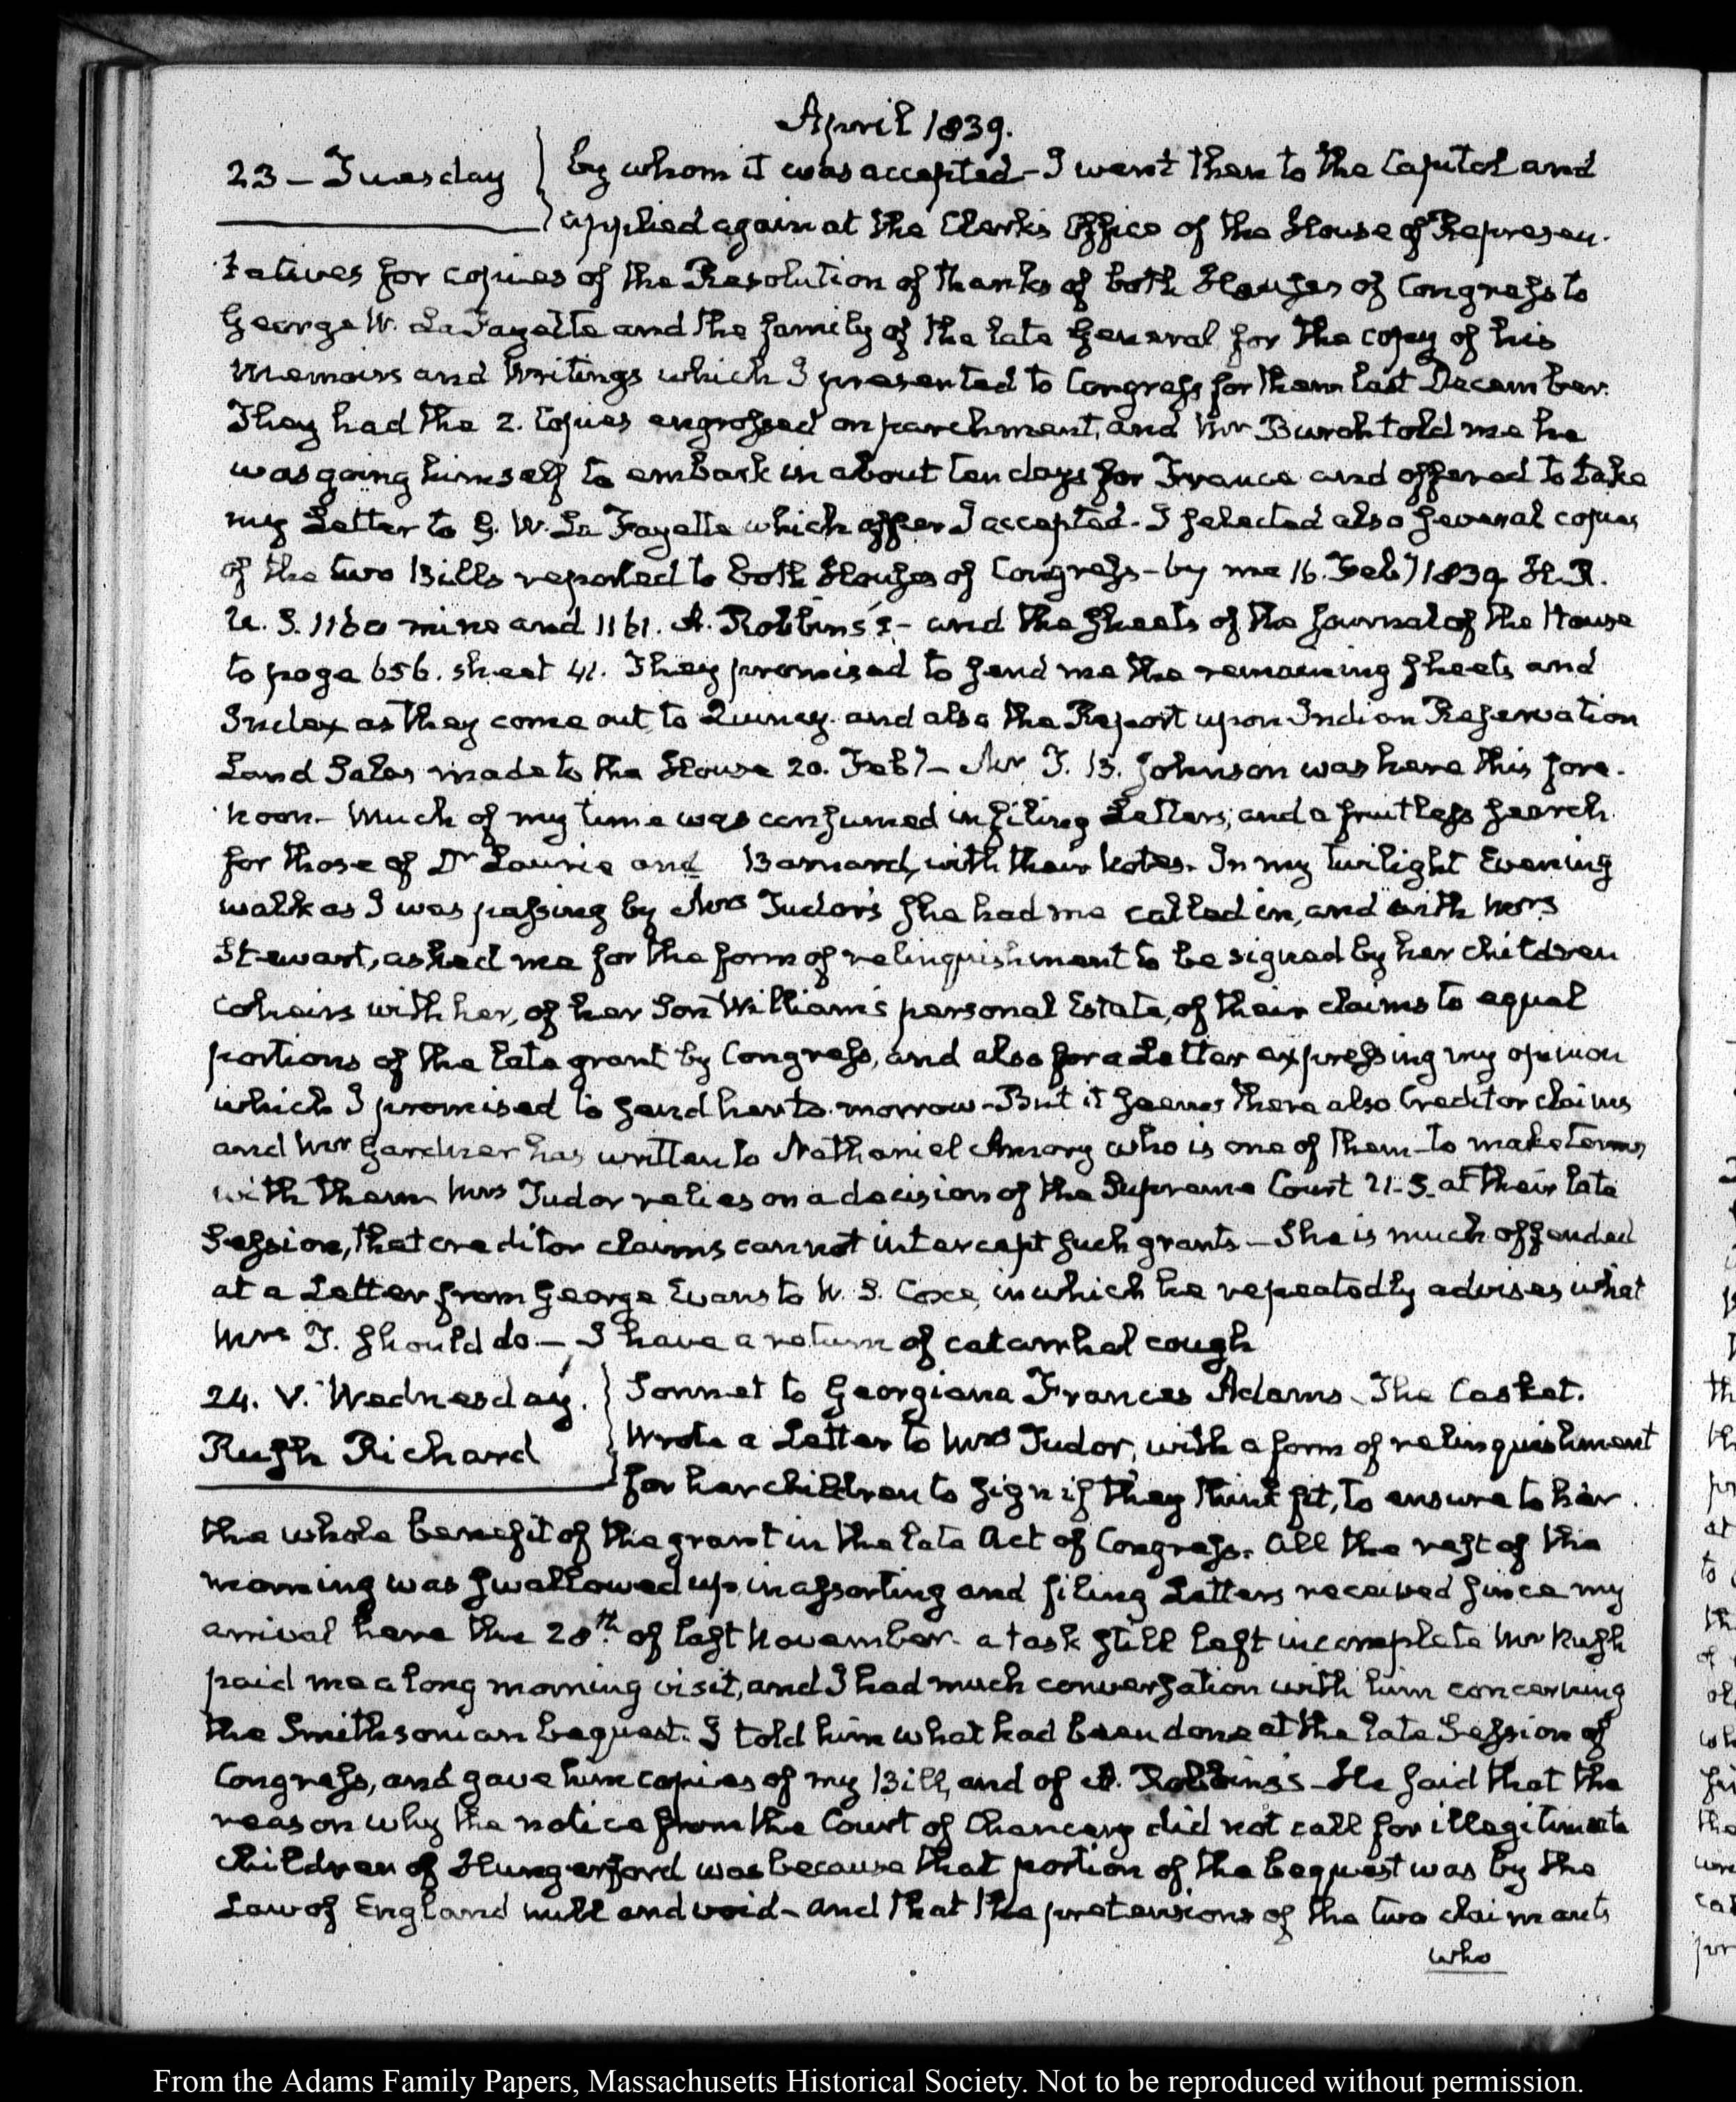 April 1839.
23 – Tuesday } by whom it was accepted – I went then to the Capitol and
applied again at the Clerk's Office of the House of Represen-
tatives for copies of the Resolution of thanks of both Houses of Congress to
George W. La Fayette and the family of the late General for the copy of his
Memoirs and Writings which I presented to Congress for them last December.
They had the 2. Copies engrossed on parchment, and Mr Burch told me he
was going himself to embark in about ten days for France and offered to take
my Letter to G. W. La Fayette which offer I accepted. I selected also several copies
of the two Bills reported to both Houses of Congress – by me 16. Feby 1839 H.R.
U. S. 1160 mine and 1161. A. Robbins's – and the sheets of the Journal of the House
to page 656. sheet 41. They promised to send me the remaining sheets and
Index as they come out to Quincy. and also the Report upon Indian Reservation
Land Sales made to the House 20. Feby – Mr T. B. Johnson was here this fore-
noon – Much of my time was consumed in filing Letters; and a fruitless search
for those of Dr Laurie and Barnard, with their Notes. In my twilight Evening
walk as I was passing by Mrs Tudor's she had me called in, and with Mrs
Stewart, asked me for the form of relinquishment to be signed by her children
coheirs with her, of her Son William's personal Estate, of their claims to equal
portions of the late grant by Congress, and also for a Letter expressing my opinion
which I promised to send her to-morrow – But it seems there also Creditor claims
and Mr Gardner has written to Nathaniel Amory who is one of them to make terms
with them Mrs Tudor relies on a decision of the Supreme Court U.S. at their late
Session, that creditor claims cannot intercept such grants – She is much offended
at a Letter from George Evans to W. S. Coxe, in which he repeatedly advises what
Mrs T. should do – I have a return of catarrhal cough
24. V. Wednesday. } Sonnet to Georgiana Frances Adams – The Casket.
Rush Richard Wrote a Letter to Mrs Tudor, with a form of relinquishment
for her children to sign if they think fit, to ensure to her
the whole benefit of the grant in the late Act of Congress. All the rest of the
morning was swallowed up in assorting and filing Letters received since my
arrival here the 28th. of last November – a task still left incomplete Mr Rush
paid me a long morning visit, and I had much conversation with him concerning
the Smithsonian bequest. I told him what had been done at the late Session of
Congress, and gave him copies of my Bill, and of A. Robbins's – He said that the
reason why the notice from the Court of Chancery did not call for illegitimate
children of Hungerford was because that portion of the bequest was by the
Law of England null and void – and that the pretensions of the two claimants
who
From the Adams Family Papers, Massachusetts Historical Society. Not to be reproduced without permission.